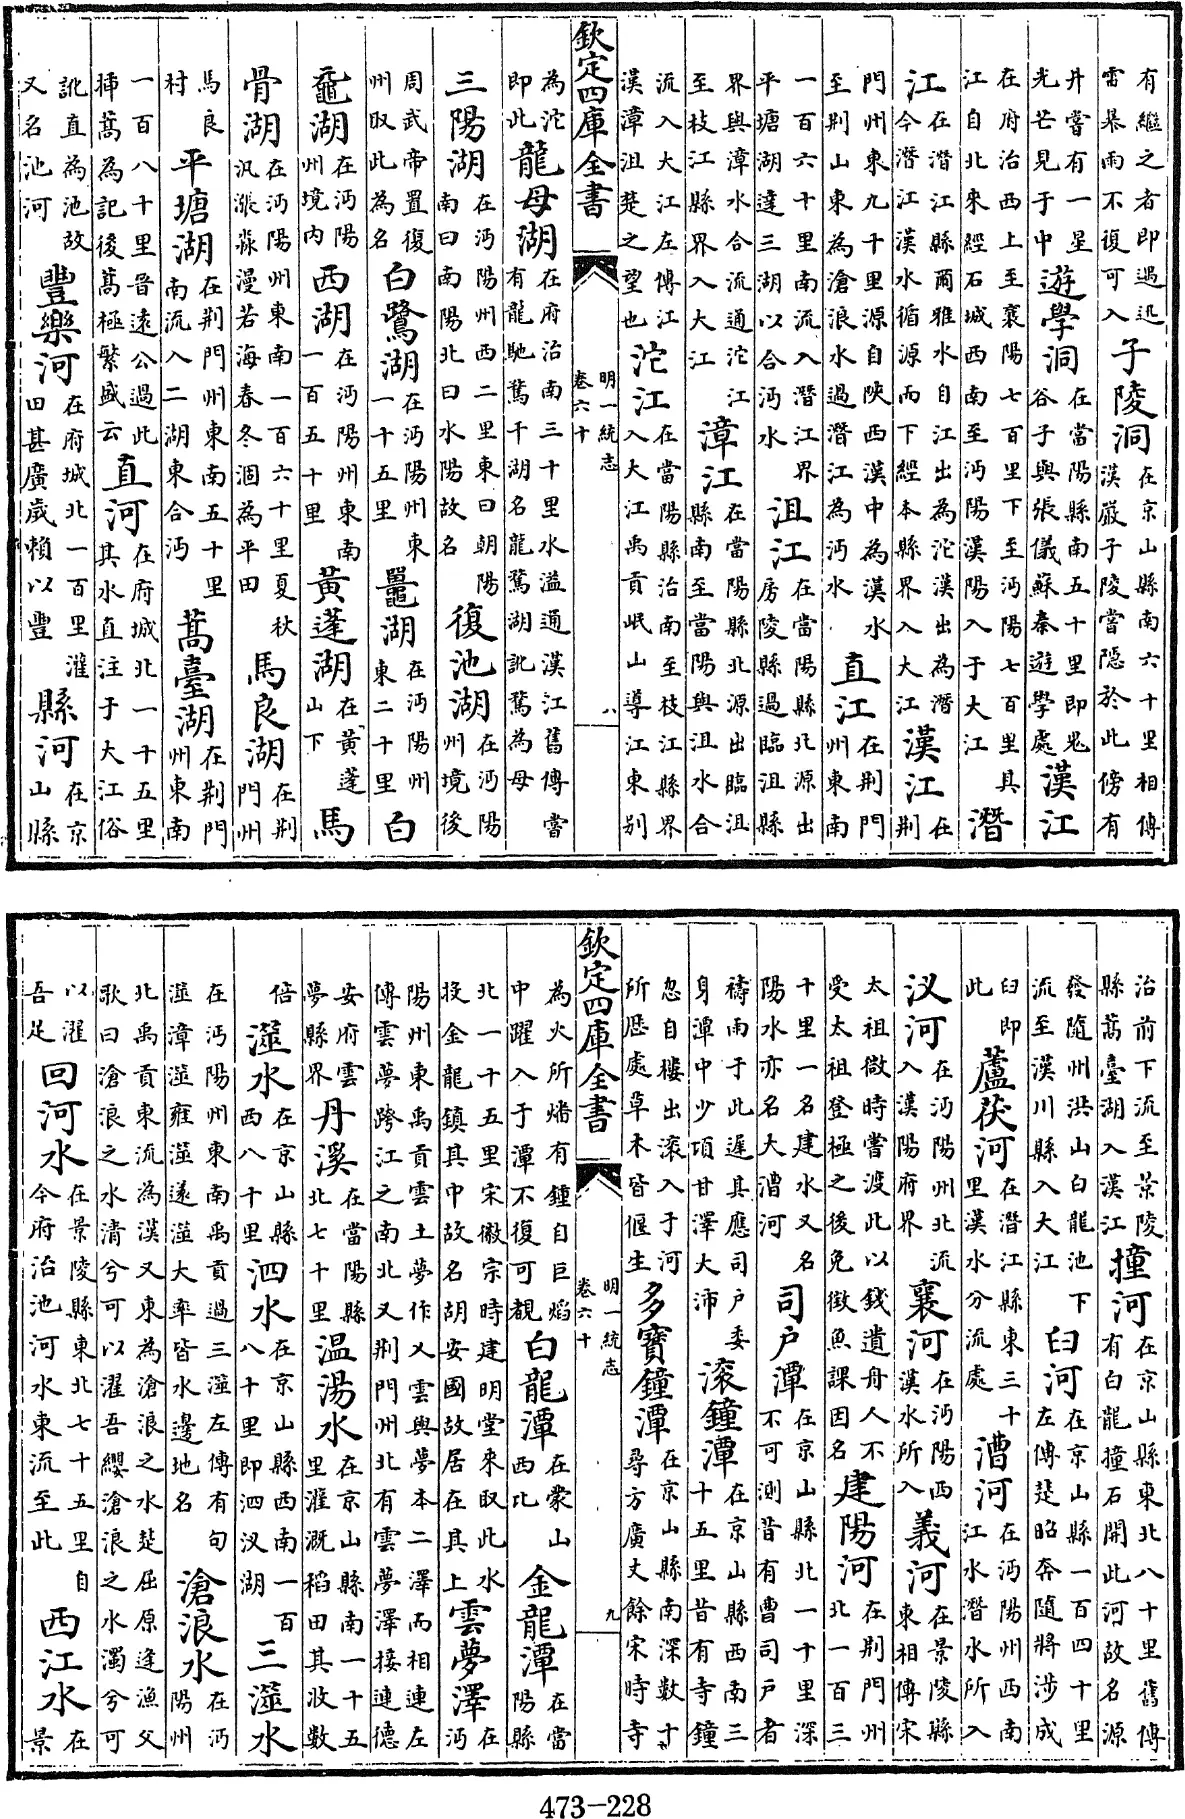 有繼之者即遇迅雷暴雨不復可入子陵洞在京山縣南六十里相傳漢嚴子陵嘗隱於此傍有
井嘗有一星光芒見于中遊學洞在當陽縣南五十里即鬼谷子與張儀蘇秦遊學處漢江
在府治西上至襄陽七百里下至沔陽七百里其江自北來經石城西南至沔陽漢陽入于大江潛
江在潛江縣爾雅水自江出為沱漢出為潛今潛江漢水循源而下經本縣界入大江漢江在荆
門州東九十里源自陝西漢中為漢水至荆山東為滄浪水過潛江為沔水直江在荆門州東南
一百六十里南流入潛江界平塘湖達三湖以合沔水沮江在當陽縣北源出房陵縣過臨沮縣
界與漳水合流通沱江至枝江縣界入大江漳江在當陽縣北源出臨沮縣南至當陽與沮水合
流入大江左傳江漢漳沮楚之望也沱江在當陽縣治南至枝江縣界入大江禹貢岷山導江東别
欽定四庫全書 明一統志 卷六十 八
為沱即此龍母湖在府治南三十里水溢通漢江舊傳嘗有龍馳騖千湖名龍騖湖訛騖為母
三陽湖在沔陽州西二里東曰朝陽南曰南陽北曰水陽故名復池湖在沔陽州境後
周武帝置復州取此為名白鷺湖在沔陽州東一十五里鼉湖在沔陽州東二十里白
黿湖在沔陽州境内西湖在沔陽州東南一百五十里黄蓬湖在黄蓬山下馬
骨湖在沔陽州東南一百六十里夏秋汎漲淼漫若海春冬涸為平田馬良湖在荆門州
馬良村平塘湖在荆門州東南五十里南流入二湖東合沔蒿臺湖在荆門州東南
一百八十里晉遠公過此揷蒿為記後蒿極繁盛云直河在府城北一十五里其水直注于大江俗
訛直為池故又名池河豐樂河在府城北一百里灌田甚廣歲賴以豐縣河在京山縣
治前下流至景陵縣蒿臺湖入漢江撞河在京山縣東北八十里舊傳有白龍撞石開此河故名源
發隨州洪山白龍池下流至漢川縣入大江臼河在京山縣一百四十里左傳楚昭奔隨將涉成
臼即此蘆茯河在潛江縣東三十里漢水分流處漕河在沔陽州西南江水潛水所入
汊河在沔陽州北流入漢陽府界襄河在沔陽西漢水所入義河在景陵縣東相傳宋
太祖微時嘗渡此以錢遺舟人不受太祖登極之後免徵魚課因名建陽河在荆門州北一百三
十里一名建水又名陽水亦名大漕河司户潭在京山縣北一十里深不可測昔有曹司户者
禱雨于此遲其應司户委身潭中少頃甘澤大沛滚鐘潭在京山縣西南三十五里昔有寺鐘
忽自樓出滚入于河所厯處草木皆偃生多寶鐘潭在京山縣南深數十尋方廣丈餘宋時寺
欽定四庫全書 明一統志 卷六十 九
為火所燔有鐘自巨焰中躍入于潭不復可覩白龍潭在蒙山西北金龍潭在當陽縣
北一十五里宋徽宗時建明堂來取此水投金龍鎮其中故名胡安國故居在其上雲夢澤在沔
陽州東禹貢雲土夢作乂雲與夢本二澤而相連左傳雲夢跨江之南北又荆門州北有雲夢澤接連德
安府雲夢縣界丹溪在當陽縣北七十里温湯水在京山縣南一十五里灌溉稻田其收數
倍澨水在京山縣西八十里泗水在京山縣西南一百八十里即泗汊湖三澨水
在沔陽州東南禹貢過三澨左傳有句澨漳澨雍澨薳澨大率皆水邊地名滄浪水在沔陽州
北禹貢東流為漢又東為滄浪之水楚屈原逢漁父歌曰滄浪之水清兮可以濯吾纓滄浪之水濁兮可
以濯吾足回河水在景陵縣東北七十五里自今府治池河水東流至此西江水在景
473-228